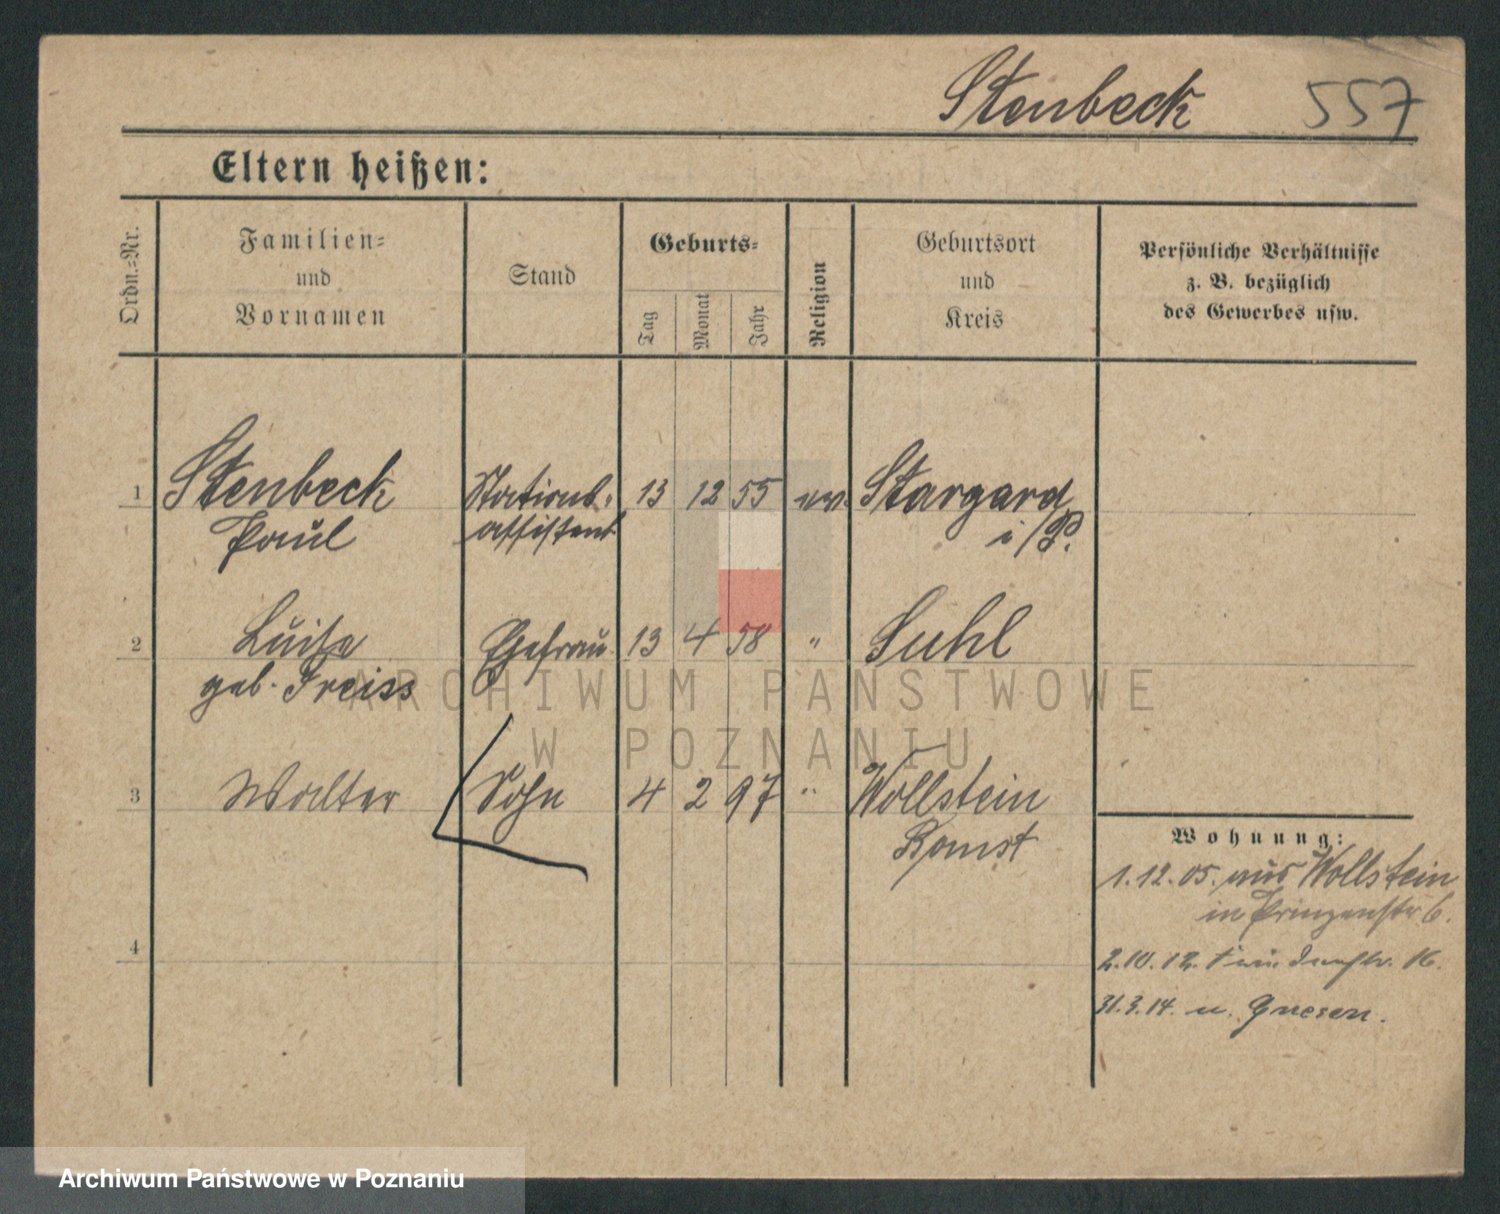 Stenbeck 557
Eltern heißen:
Ordn.=Nr.
Familien=
und
Vornamen
Stand
Geburts=
Tag
Monat
Jahr
Religion
Geburtsort
und
Kreis
Persönliche Verhältnisse
z. B. bezüglich
des Gewerbes usw.
1 Stenbeck Stations= 13 12 55 ev. Stargard
Paul assistent i/P.
2 Luise Ehefrau 13 4 58 " Suhl
geb. Freiss
3 Walter Sohn 4 2 97 " Wollstein
Bomst
Wohnung:
1.12.05. aus Wollstein
in Prinzenstr 6.
4
2.10.12. 16.
31.3.14. n. Gnesen.
ARCHIWUM PAŃSTWOWE
W POZNANIU
Archiwum Państwowe w Poznaniu